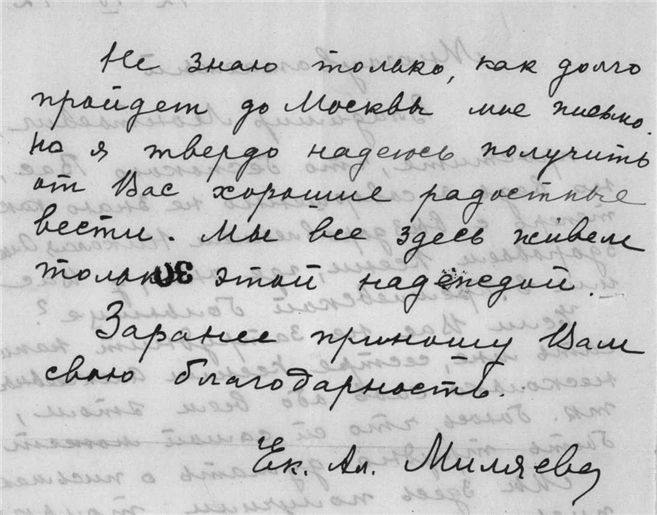 Не знаю только, как долго
пройдет до Москвы мое письмо.
Но я твердо надеюсь получить
от Вас хорошие радостные
вести. Мы все здесь живем
только этой надеждой.
Заранее приношу Вам
свою благодарность.
Ек. Ал. Миляева